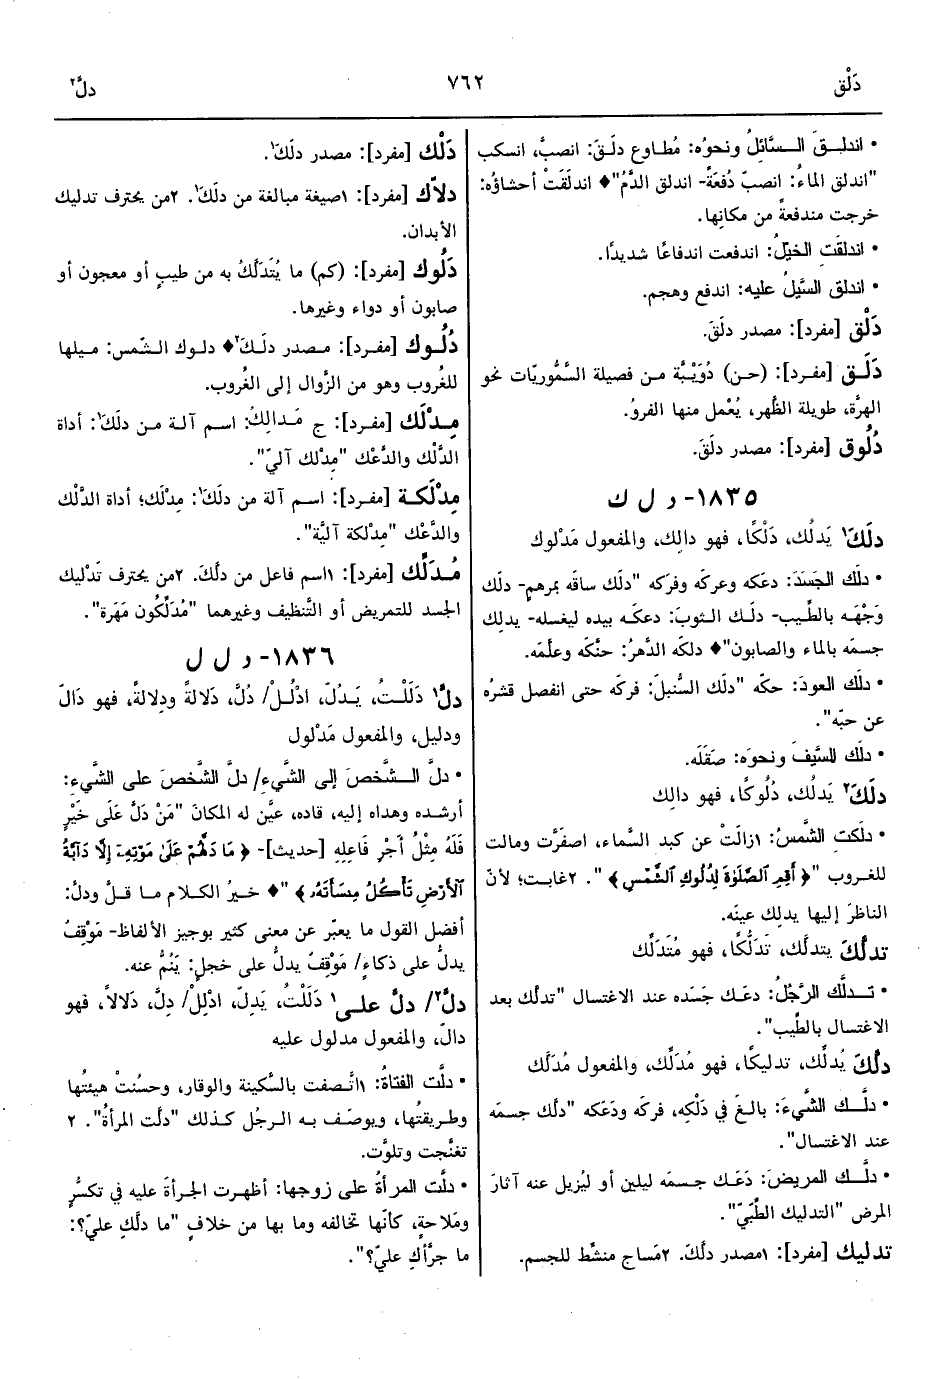 دَلْق
٧٦٢
دلَّ٢
• اندلـقَ الـسَّائِلُ ونحوُه: مُطـاوع دلَقَ: انصبَّ، انسكب
"اندلق الماءُ: انصبّ دُفعَةً- اندلق الدَّمُ"♦ اندلَقَتْ أحشاؤُه:
خرجت مندفعةً من مكانِها.
• اندلقَت الخيْلُ: اندفعت اندفاعًا شديدًا.
• اندلق السَّيْلُ عليه: اندفع وهجم.
دَلْق [مفرد]: مصدر دلَقَ.
دَلَـق [مفرد]: (حـن) دُوَيْبَّة مـن فصيلة السَّمُّوريّات نحو
الهِرَّة، طويلة الظَّهر، يُعْمل منها الفروُ.
دُلُوق [مفرد]: مصدر دلَقَ.
١٨٣٥- د ل ك
دلَكَ١ يَدلُك، دَلْكًا، فهو دالِك، والمفعول مَدْلوك
• دلَك الجَسَدَ: دعَكه وعركه وفرَكه "دلَك ساقَه بمرهمٍ- دلَك
وَجْهَـه بالطِّيـب- دلَـك الثوبَ: دعكـه بيده ليغسله- يدلِك
جسمَه بالماء والصابون"♦ دلكَه الدَّهرُ: حنَّكه وعلَّمه.
• دلَك العودَ: حكّه "دلَك السُّنبلَ: فركه حتى انفصل قشرُه
عن حبّه".
• دلَك السَّيفَ ونحوَه: صَقَلَه.
دلَكَ٢ يَدلُك، دُلُوكًا، فهو دالِك
• دلَكت الشَّمسُ: ١زالَتْ عن كبد السَّماء، اصفرَّت ومالت
للغروب "﴿ أَقِمِ ٱلصَّلَوٰةَ لِدُلُوكِ ٱلشَّمْسِ ﴾". ٢غابت؛ لأنّ
الناظرَ إليها يدلِك عينَه.
تدلَّكَ يتدلَّك، تَدَلُّكًا، فهو مُتَدَلِّك
• تـدلَّك الرَّجُلُ: دعَـك جَسَده عند الاغتسال "تدلّك بعد
الاغتسال بالطِّيب".
دلَّكَ يُدلِّك، تدليكًا، فهو مُدَلِّك، والمفعول مُدَلَّك
• دلَّـك الشَّيءَ: بالـغَ في دَلْكِه، فركه ودَعَكه "دلّك جسمَه
عند الاغتسال".
• دلَّـك المريضَ: دَعَـك جسمَه ليلين أو ليُزيل عنه آثارَ
المرض "التدليك الطِّبّيّ".
تدليك [مفرد]: ١مصدر دلَّكَ. ٢مَساج منشِّط للجسم.
دَلْك [مفرد]: مصدر دلَكَ١.
دلاّك [مفرد]: ١صيغة مبالغة من دلَكَ١. ٢من يحترف تدليك
الأبدان.
دَلُوك [مفرد]: (كم) ما يُتَدَلَّكُ به من طيبٍ أو معجون أو
صابون أو دواء وغيرها.
دُلُـوك [مفـرد]: مـصدر دلَـكَ٢♦ دلـوك الـشّمس: مـيلها
للغُروب وهو من الزَّوال إلى الغُروب.
مِـدْلَك [مفـرد]: ج مَـدالِكُ: اسـم آلـة مـن دلَكَ١: أداة
الدَّلْك والدَّعْك "مِدْلك آليّ".
مِدْلَكـة [مفـرد]: اسـم آلة من دلَكَ١: مِدْلَك؛ أداة الدَّلْك
والدَّعْك "مِدْلكة آليَّة".
مُـدَلِّك [مفرد]: ١اسم فاعل من دلَّكَ. ٢من يحترف تَدْليك
الجسد للتمريض أو التَّنظيف وغيرهما "مُدَلِّكون مَهَرة".
١٨٣٦- د ل ل
دلَّ١ دَلَلْـتُ، يَـدُلّ، ادْلُـلْ/ دُلَّ، دَلالةً ودِلالةً، فهو دَالّ
ودليل، والمفعول مَدْلول
• دلَّ الـشَّخصَ إلى الشَّيءِ/ دلَّ الشَّخصَ على الشَّيءِ:
أرشده وهداه إليه، قاده، عيَّن له المكانَ "مَنْ دَلَّ عَلَى خَيْرٍ
فَلَهُ مِثْلُ أَجْرِ فَاعِلِهِ [حديث]- ﴿ مَا دَلَّهُمْ عَلَىٰ مَوْتِهِۦٓ إِلَّا دَآبَّةُ
ٱلْأَرْضِ تَأْكُلُ مِنسَأَتَهُۥ ﴾"♦ خيـرُ الكـلام مـا قـلَّ ودلّ:
أفضل القول ما يعبِّر عن معنى كثير بوجيز الألفاظ- مَوْقِفٌ
يدلُّ على ذكاءٍ/ مَوْقِفٌ يدلُّ على خجلٍ: يَنُمُّ عنه.
دلَّ٢/ دلَّ علـى١ دَلَلْتُ، يَدِلّ، ادْلِلْ/ دِلَّ، دَلالاً، فهو
دالّ، والمفعول مدلول عليه
• دلَّت الفتاةُ: ١اتَّصفت بالسَّكينة والوقار، وحسُنتْ هيئتُها
وطريقتُها، ويوصَـف بـه الـرجُل كـذلك "دلّت المرأةُ". ٢
تغنَّجت وتلوَّت.
• دلَّت المرأةُ على زوجها: أظهرت الجرأةَ عليه في تكسُّرٍ
ومَلاحةٍ، كأنّها تخالفه وما بها من خلافٍ "ما دلَّكِ عليَّ؟:
ما جرَّأكِ عليَّ؟".